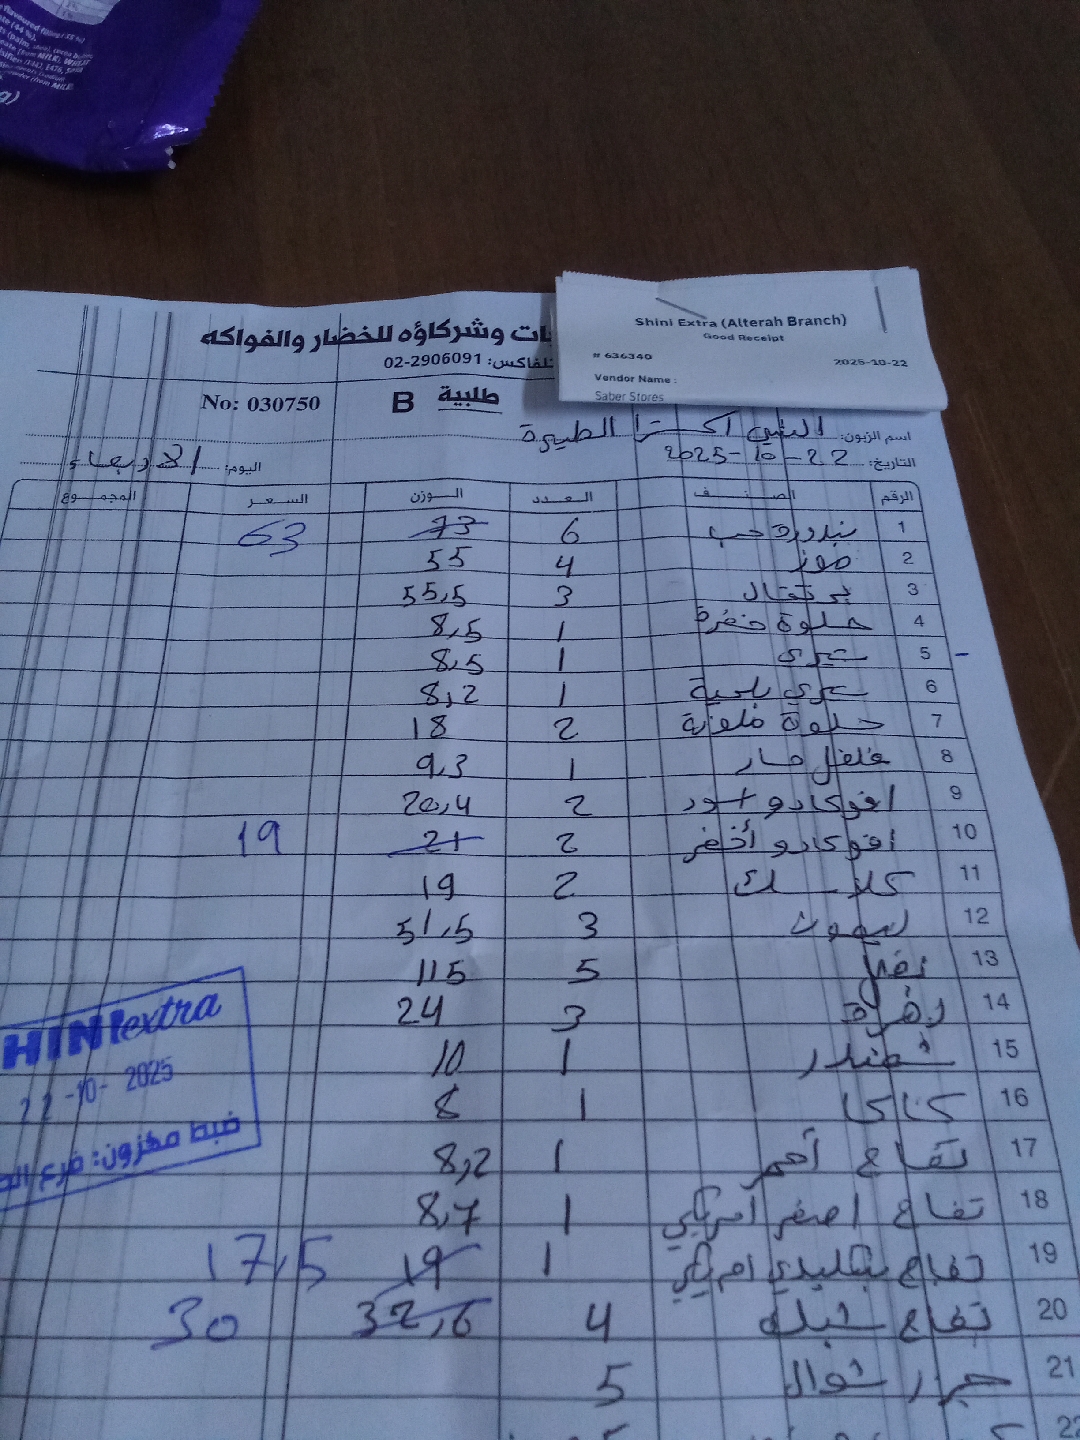 يات وشركاؤه للخضار والفواكه
تلفاكس: 02-2906091
Shini Extra (Alterah Branch)
Good Receipt
# 636340 2025-10-22
Vendor Name :
Saber Stores
طلبية B No: 030750
اسم الزبون: الشني اكسترا الطيرة
التاريخ: 22-10-2025 اليوم: الاربعاء
الرقم الصنف العدد الوزن السعر المجموع
1 بندورة حب 6 73 63
2 موز 4 55
3 برتقال 3 55,5
4 حلوة خضرة 1 8,5
5 1 8,5
6 بلدية 1 8,2
7 حلوة ملونة 2 18
8 فلفل حار 1 9,3
9 افوكادو اسود 2 20,4
10 افوكادو أخضر 2 21 19
11 2 19
12 ليمون 3 51,5
13 5 115
14 زهرة 3 24
15 شمندر 1 10
16 كاكا 1 8
17 تفاح أحمر 1 8,2
18 تفاح اصفر أمريكي 1 8,7
19 تفاح امريكي 1 19 17,5
20 تفاح 4 32,6 30
21 جزر شوال 5
22
HINI extra
22-10-2025
ضبط مخزون: فرع